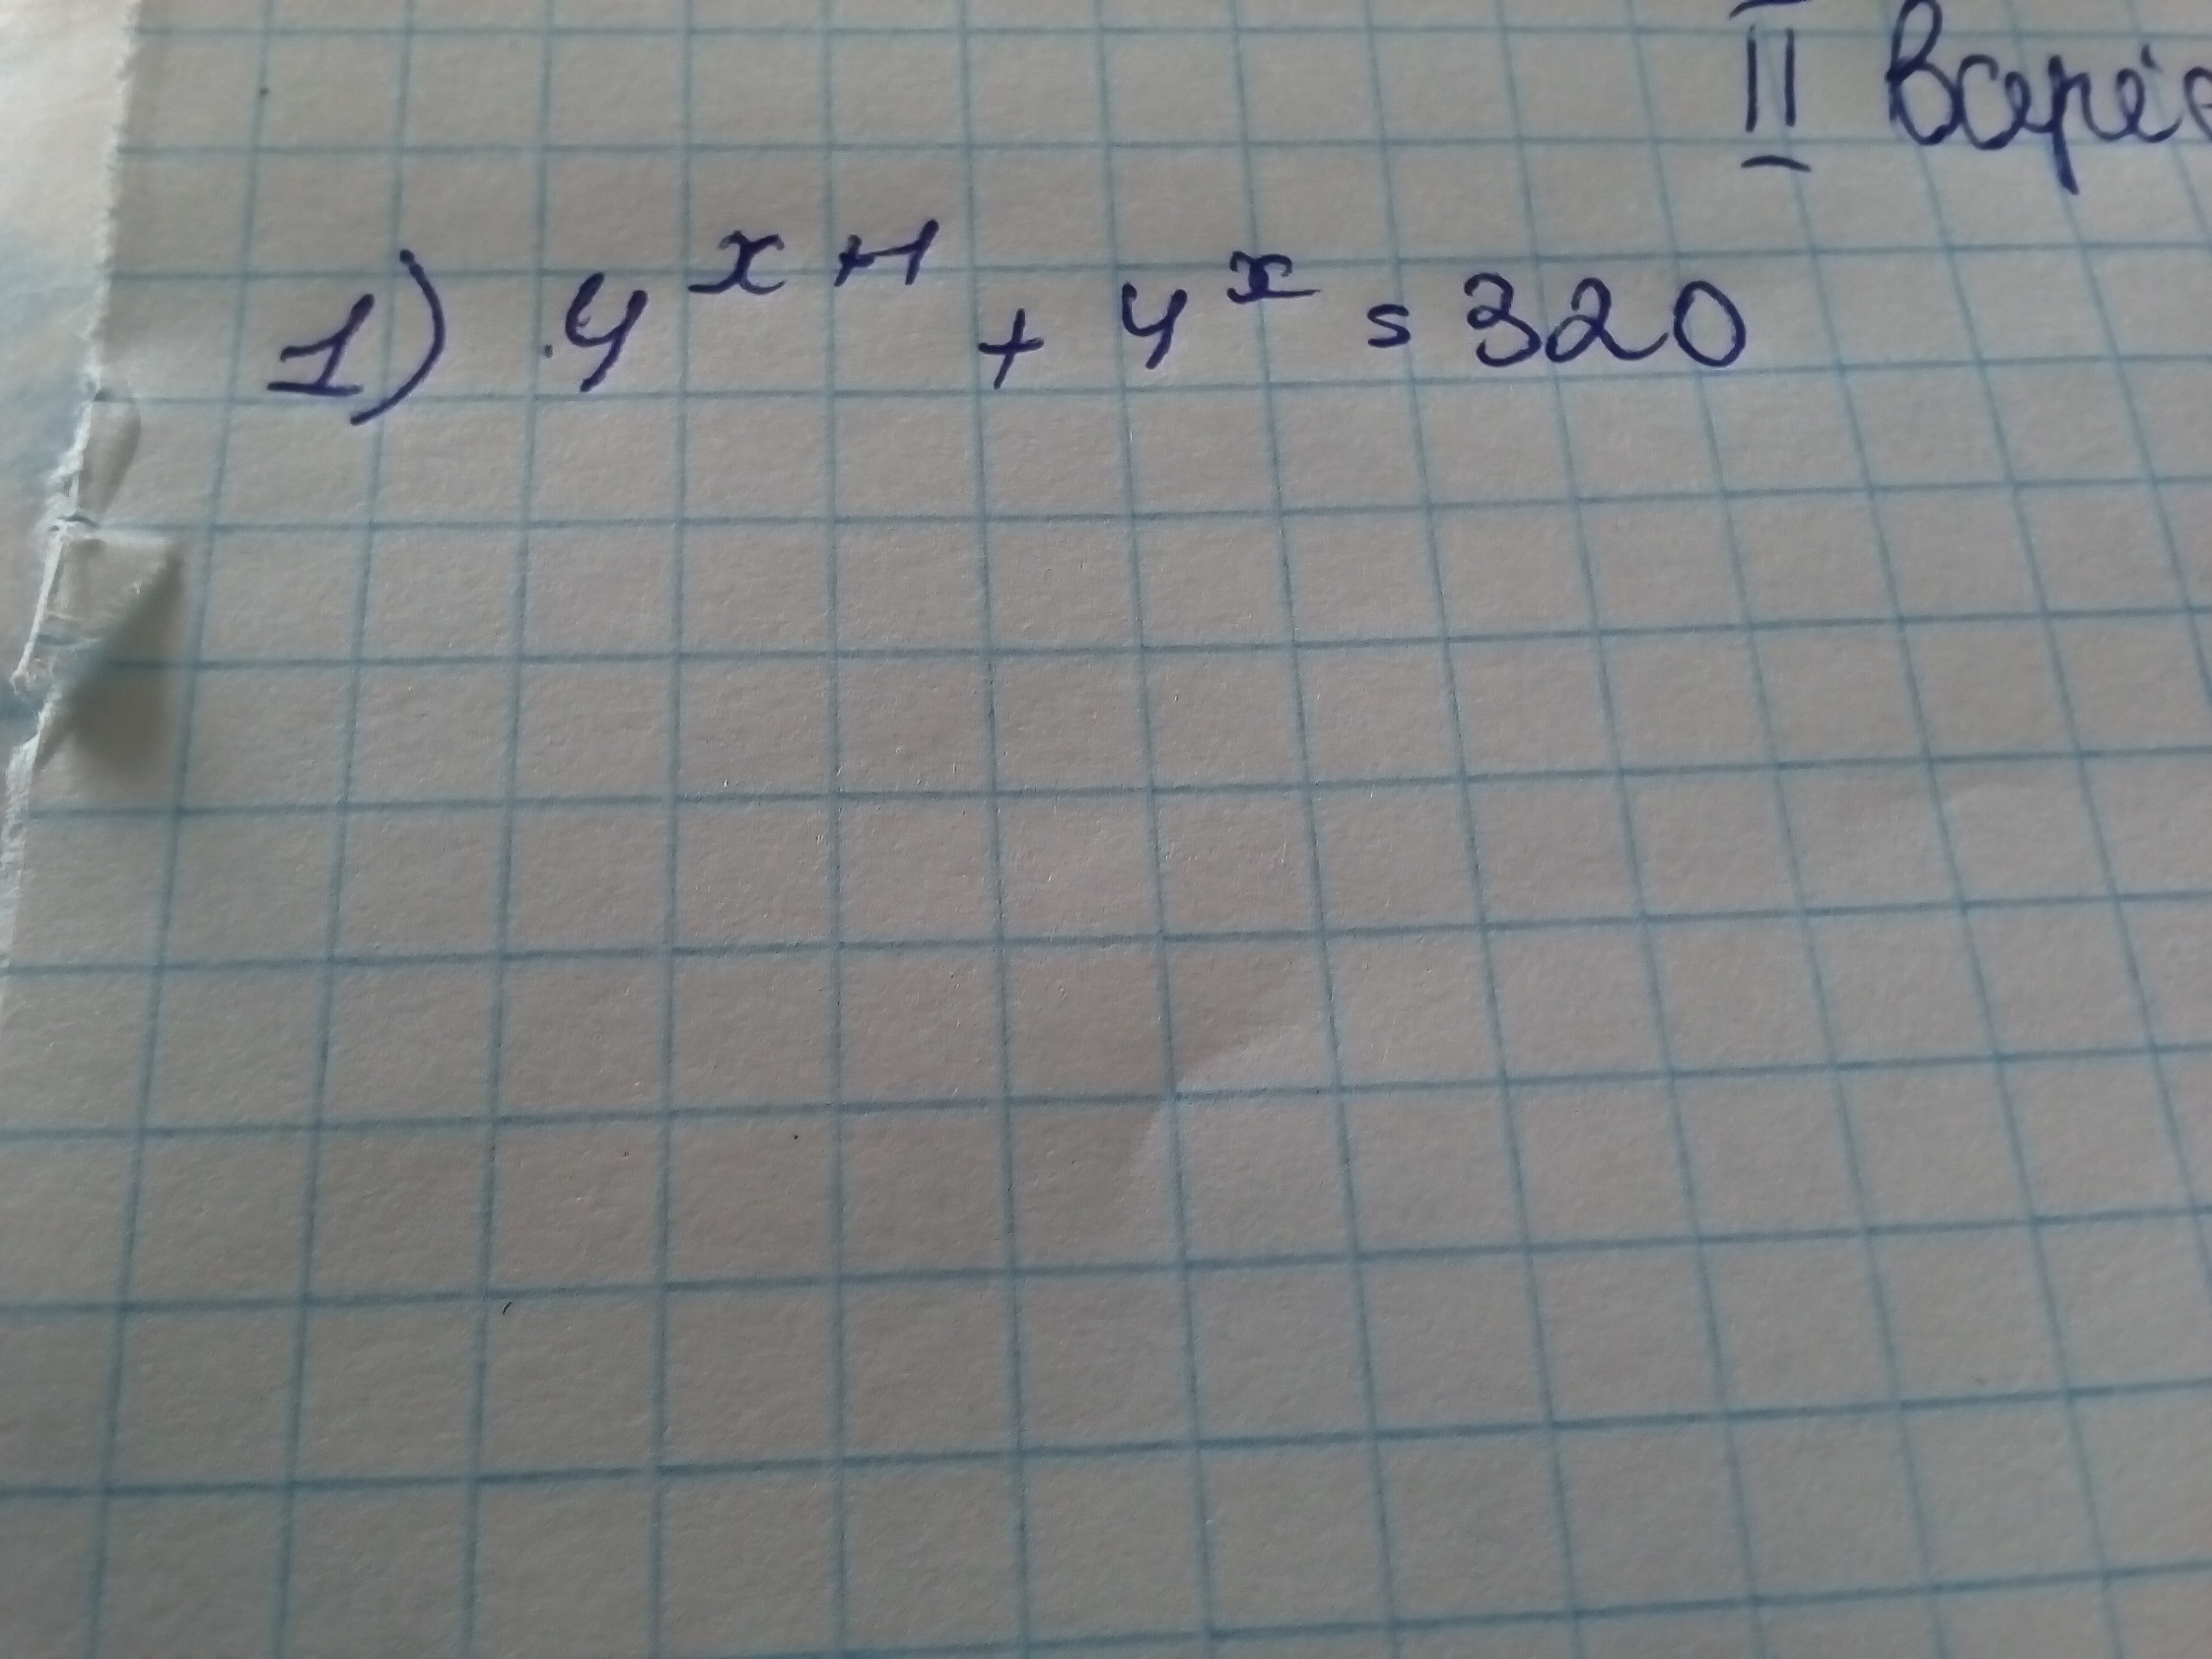 II варіа
1) 4^{x+1} + 4^x = 320